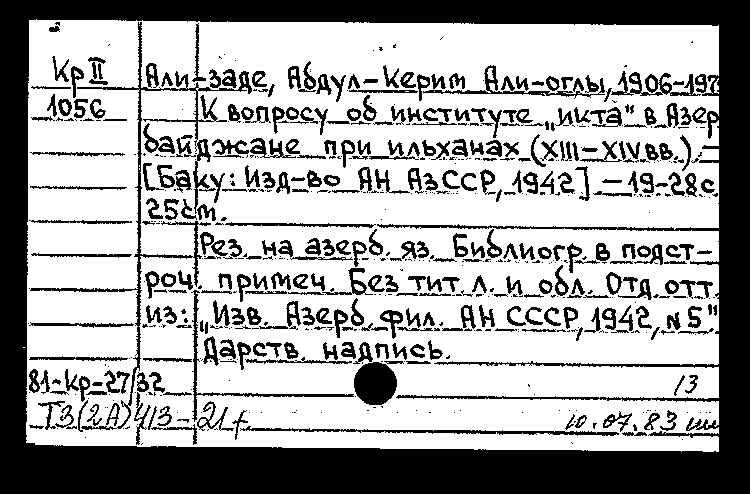 Кр II Али-заде, Абдул-Керим Али-оглы, 1906-197
1056 К вопросу об институте „икта" в Азер
байджане при ильханах (XIII-XIV вв.) –
[Баку: Изд-во АН АзССР, 1942] – 19-28 с
25 см.
Рез. на азерб. яз. Библиогр. в подст-
роч. примеч. Без тит. л. и обл. Отд. отт.
из: „Изв. Азерб. фил. АН СССР, 1942, № 5"
Дарств. надпись.
81-кр-27/32 13
ТЗ(2А)413-21 10.07.83